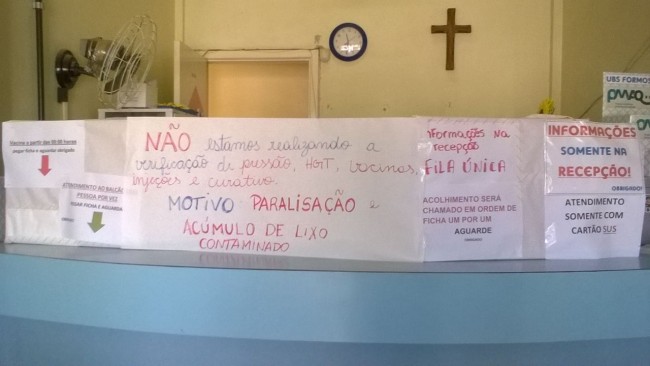 Vacina a partir das 09:00 horas
pegar ficha e aguardar obrigado
ATENDIMENTO AO BALCÃO
PESSOA POR VEZ
PEGAR FICHA E AGUARDAR
NÃO estamos realizando a
verificação de pressão, HGT, vacinas,
injeções e curativo.
MOTIVO PARALISAÇÃO e
ACÚMULO DE LIXO
CONTAMINADO
Informações na
recepção
FILA ÚNICA
ACOLHIMENTO SERÁ
CHAMADO EM ORDEM DE
FICHA UM POR UM
AGUARDE
INFORMAÇÕES
SOMENTE NA
RECEPÇÃO!
OBRIGADO!
ATENDIMENTO
SOMENTE COM
CARTÃO SUS
UBS FORMOS
PMAQ